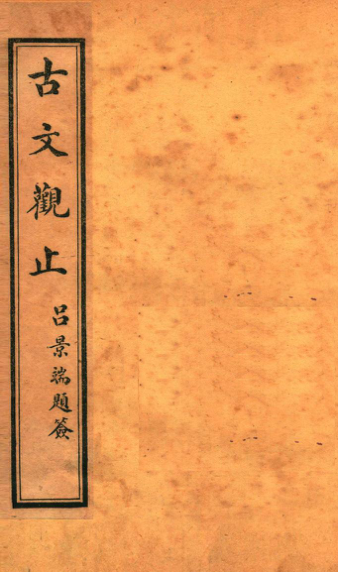 古文觀止
吕景端題簽